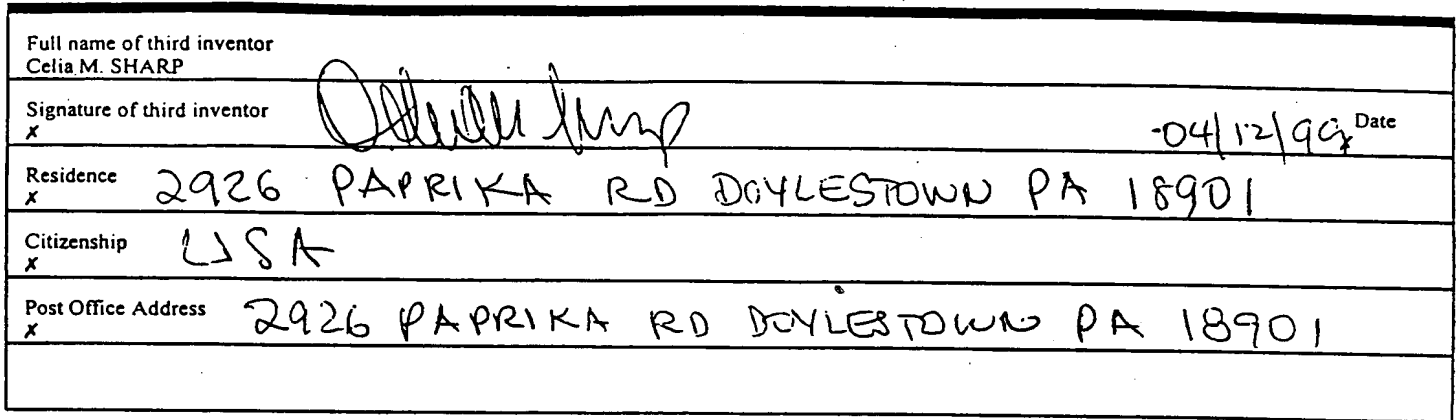 Full name of third inventor
Celia M. SHARP
Signature of third inventor
x 04/12/99 x Date
Residence 2926 PAPRIKA RD DOYLESTOWN PA 18901
x
Citizenship USA
x
Post Office Address 2926 PAPRIKA RD DOYLESTOWN PA 18901
x